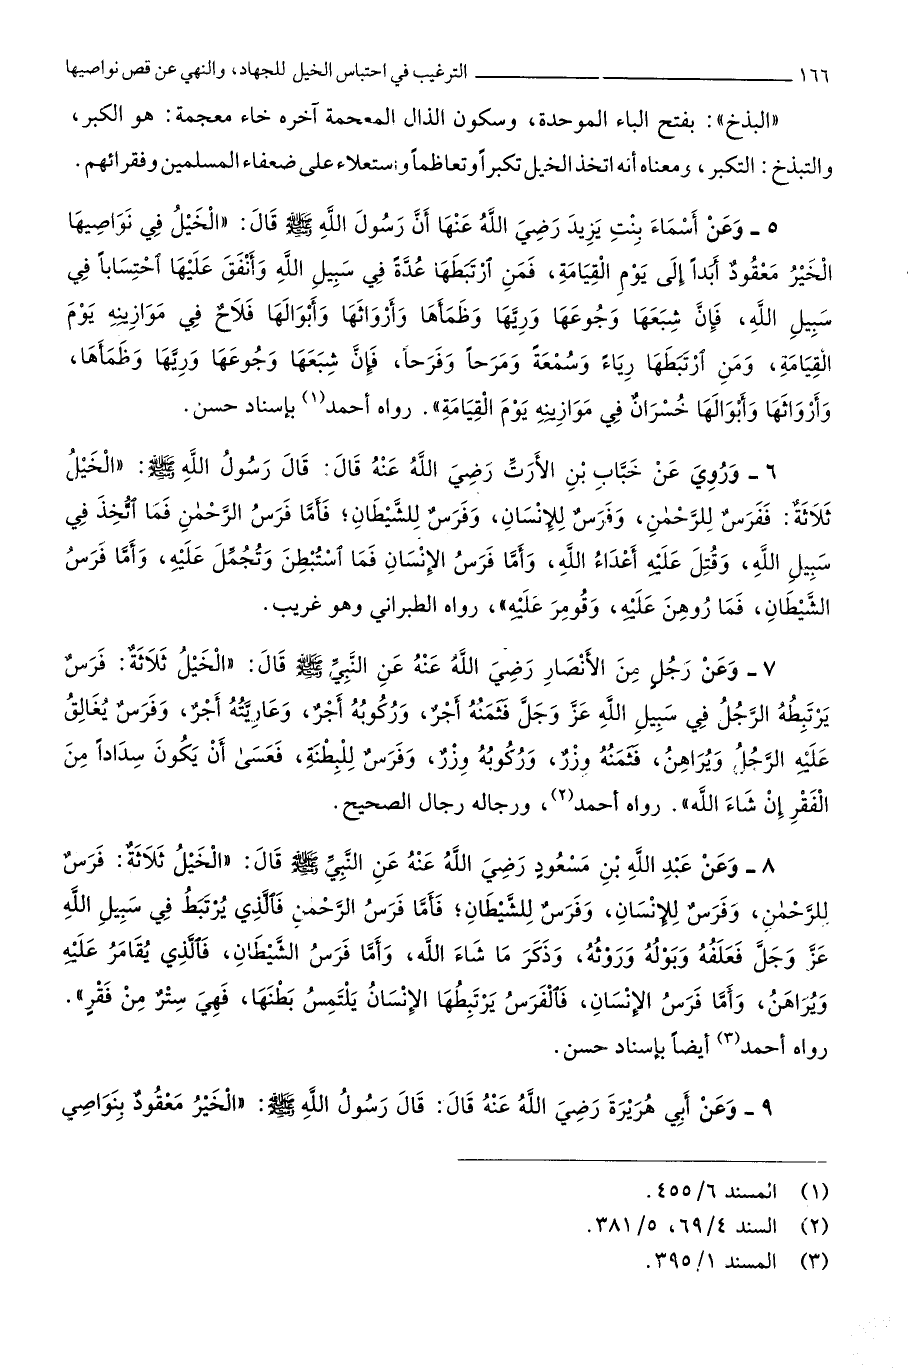 ١٦٦ ـــــــــــــــــــــــــ الترغيب في احتباس الخيل للجهاد، والنهي عن قص نواصيها
«البذخ»: بفتح الباء الموحدة، وسكون الذال المعجمة آخره خاء معجمة: هو الكبر،
والتبذخ: التكبر، ومعناه أنه اتخذ الخيل تكبراً وتعاظماً واستعلاء على ضعفاء المسلمين وفقرائهم.
٥ ـ وَعَنْ أَسْمَاءَ بِنْتِ يَزِيدَ رَضِيَ اللَّهُ عَنْهَا أَنَّ رَسُولَ اللَّهِ ﷺ قَالَ: «الْخَيْلُ فِي نَوَاصِيهَا
الْخَيْرُ مَعْقُودٌ أَبَداً إِلَى يَوْمِ الْقِيَامَةِ، فَمَنِ ٱرْتَبَطَهَا عُدَّةً فِي سَبِيلِ اللَّهِ وَأَنْفَقَ عَلَيْهَا ٱحْتِسَاباً فِي
سَبِيلِ اللَّهِ، فَإِنَّ شِبَعَهَا وَجُوعَهَا وَرِيَّهَا وَظَمَأَهَا وَأَرْوَاثَهَا وَأَبْوَالَهَا فَلَاحٌ فِي مَوَازِينِهِ يَوْمَ
الْقِيَامَةِ، وَمَنِ ٱرْتَبَطَهَا رِيَاءً وَسُمْعَةً وَمَرَحاً وَفَرَحاً، فَإِنَّ شِبَعَهَا وَجُوعَهَا وَرِيَّهَا وَظَمَأَهَا،
وَأَرْوَاثَهَا وَأَبْوَالَهَا خُسْرَانٌ فِي مَوَازِينِهِ يَوْمَ الْقِيَامَةِ». رواه أحمد(١) بإسناد حسن.
٦ ـ وَرُوِيَ عَنْ خَبَّابِ بْنِ الأَرَتِّ رَضِيَ اللَّهُ عَنْهُ قَالَ: قَالَ رَسُولُ اللَّهِ ﷺ: «الْخَيْلُ
ثَلَاثَةٌ: فَفَرَسٌ لِلرَّحْمٰنِ، وَفَرَسٌ لِلإِنْسَانِ، وَفَرَسٌ لِلشَّيْطَانِ؛ فَأَمَّا فَرَسُ الرَّحْمٰنِ فَمَا ٱتُّخِذَ فِي
سَبِيلِ اللَّهِ، وَقُتِلَ عَلَيْهِ أَعْدَاءُ اللَّهِ، وَأَمَّا فَرَسُ الإِنْسَانِ فَمَا ٱسْتُبْطِنَ وَتُجُمِّلَ عَلَيْهِ، وَأَمَّا فَرَسُ
الشَّيْطَانِ، فَمَا رُوهِنَ عَلَيْهِ، وَقُومِرَ عَلَيْهِ»، رواه الطبراني وهو غريب.
٧ ـ وَعَنْ رَجُلٍ مِنَ الأَنْصَارِ رَضِيَ اللَّهُ عَنْهُ عَنِ النَّبِيِّ ﷺ قَالَ: «الْخَيْلُ ثَلَاثَةٌ: فَرَسٌ
يَرْتَبِطُهُ الرَّجُلُ فِي سَبِيلِ اللَّهِ عَزَّ وَجَلَّ فَثَمَنُهُ أَجْرٌ، وَرُكُوبُهُ أَجْرٌ، وَعَارِيَّتُهُ أَجْرٌ، وَفَرَسٌ يُغَالِقُ
عَلَيْهِ الرَّجُلُ وَيُرَاهِنُ، فَثَمَنُهُ وِزْرٌ، وَرُكُوبُهُ وِزْرٌ، وَفَرَسٌ لِلْبِطْنَةِ، فَعَسَىٰ أَنْ يَكُونَ سِدَاداً مِنَ
الْفَقْرِ إِنْ شَاءَ اللَّه». رواه أحمد(٢)، ورجاله رجال الصحيح.
٨ ـ وَعَنْ عَبْدِ اللَّهِ بْنِ مَسْعُودٍ رَضِيَ اللَّهُ عَنْهُ عَنِ النَّبِيِّ ﷺ قَالَ: «الْخَيْلُ ثَلَاثَةٌ: فَرَسٌ
لِلرَّحْمٰنِ، وَفَرَسٌ لِلإِنْسَانِ، وَفَرَسٌ لِلشَّيْطَانِ؛ فَأَمَّا فَرَسُ الرَّحْمٰنِ فَٱلَّذِي يُرْتَبَطُ فِي سَبِيلِ اللَّهِ
عَزَّ وَجَلَّ فَعَلَفُهُ وَبَوْلُهُ وَرَوْثُهُ، وَذَكَرَ مَا شَاءَ اللَّه، وَأَمَّا فَرَسُ الشَّيْطَانِ، فَٱلَّذِي يُقَامَرُ عَلَيْهِ
وَيُرَاهَنُ، وَأَمَّا فَرَسُ الإِنْسَانِ، فَٱلْفَرَسُ يَرْتَبِطُهَا الإِنْسَانُ يَلْتَمِسُ بَطْنَهَا، فَهِيَ سِتْرٌ مِنْ فَقْرٍ».
رواه أحمد(٣) أيضاً بإسناد حسن.
٩ ـ وَعَنْ أَبِي هُرَيْرَةَ رَضِيَ اللَّهُ عَنْهُ قَالَ: قَالَ رَسُولُ اللَّهِ ﷺ: «الْخَيْرُ مَعْقُودٌ بِنَوَاصِي
(١) المسند ٦/ ٤٥٥.
(٢) السند ٤/ ٦٩، ٥/ ٣٨١.
(٣) المسند ١/ ٣٩٥.